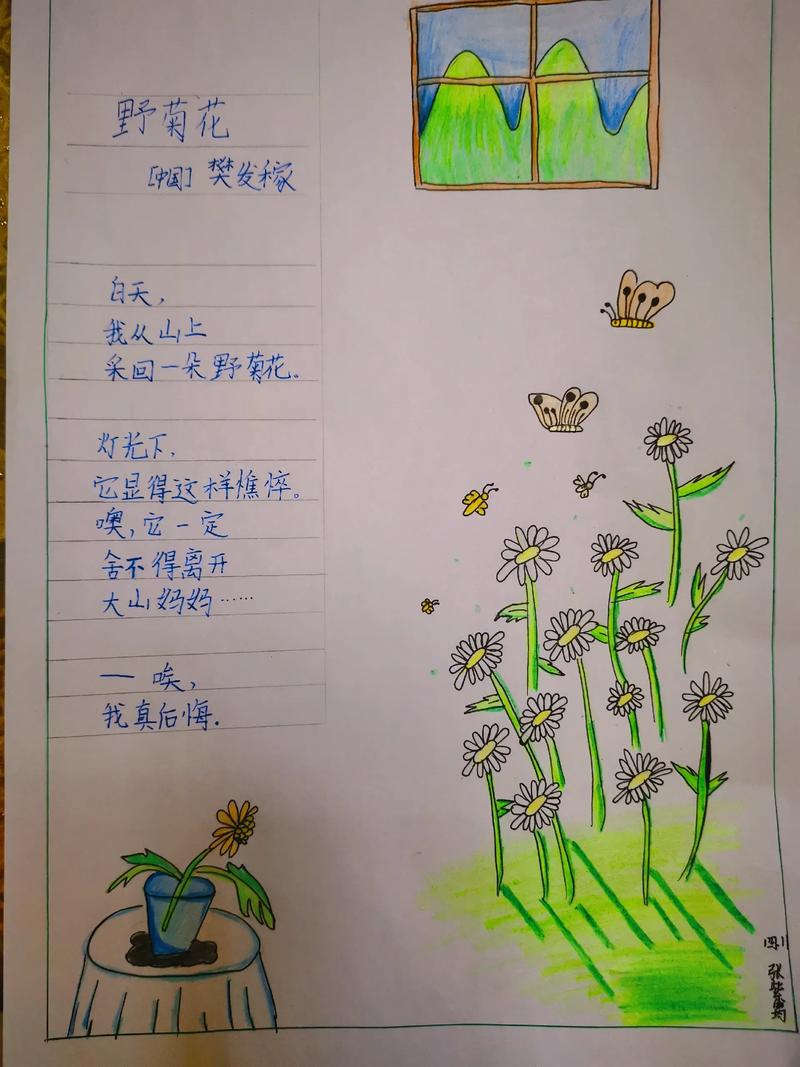 野菊花
[中国] 樊发稼
白天，
我从山上
采回一朵野菊花。
灯光下，
它显得这样憔悴。
噢，它一定
舍不得离开
大山妈妈……
— 唉，
我真后悔.
张紫